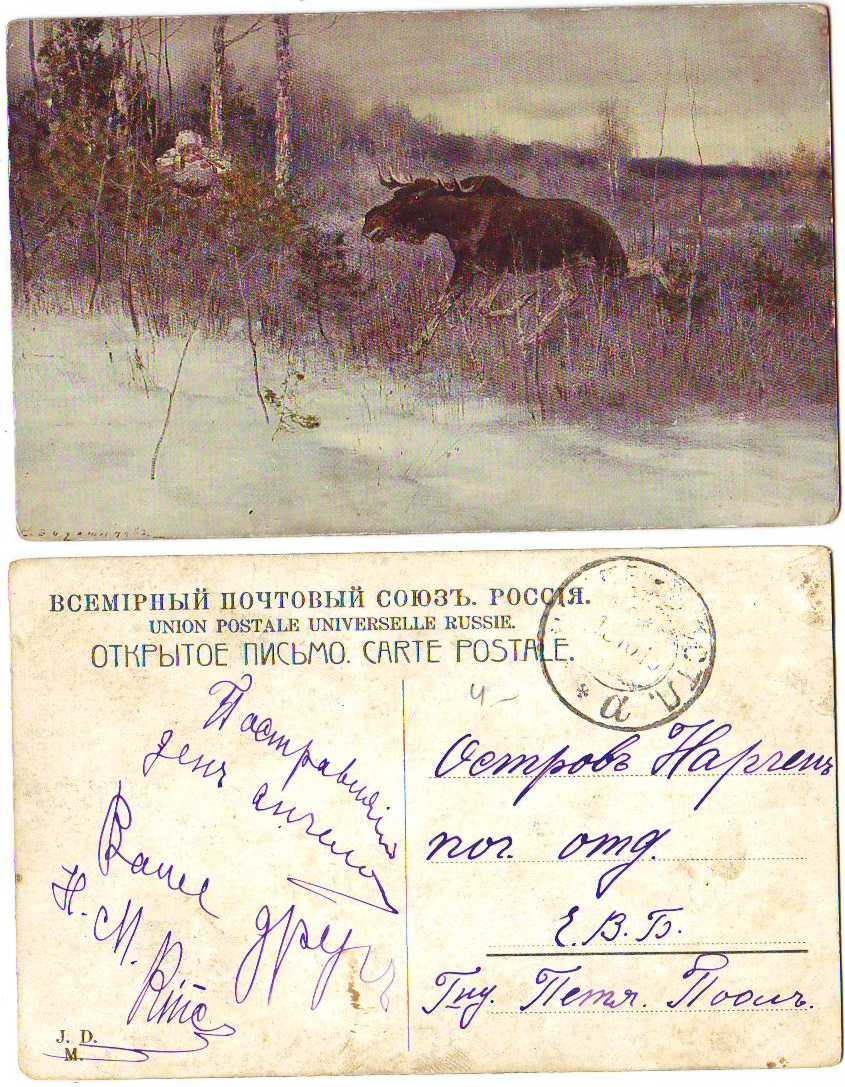 ВСЕМІРНЫЙ ПОЧТОВЫЙ СОЮЗЪ. РОССІЯ.
UNION POSTALE UNIVERSELLE RUSSIE.
ОТКРЫТОЕ ПИСЬМО. CARTE POSTALE.
а
Поздравляю
денъ ангела
Ваше
другъ
Н. М.
J. D.
M.
Островъ Наргенъ
пог. отд.
Е. В. Б.
Гну. Петя.